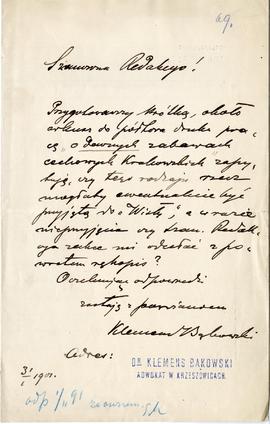 69.
Szanowna Redakcyo!
Przygotowawszy krótką, około
arkusz do półtora druku pra-
cę „o dawnych zabawach
cechowych Krakowskich" zapy-
tuję, czy tego rodzaju rzecz
mogłaby ewentualnie być
przyjętą do „Wisły", a w razie
nieprzyjęcia czy szan. Redak-
cya zechce mi odesłać z po-
wrotem rękopis?
Oczekując odpowiedzi
zostaję z poważaniem
Klemens Bąkowski
Adres:
DR KLEMENS BĄKOWSKI
ADWOKAT W KRZESZOWICACH.
31/I 1901.
odp